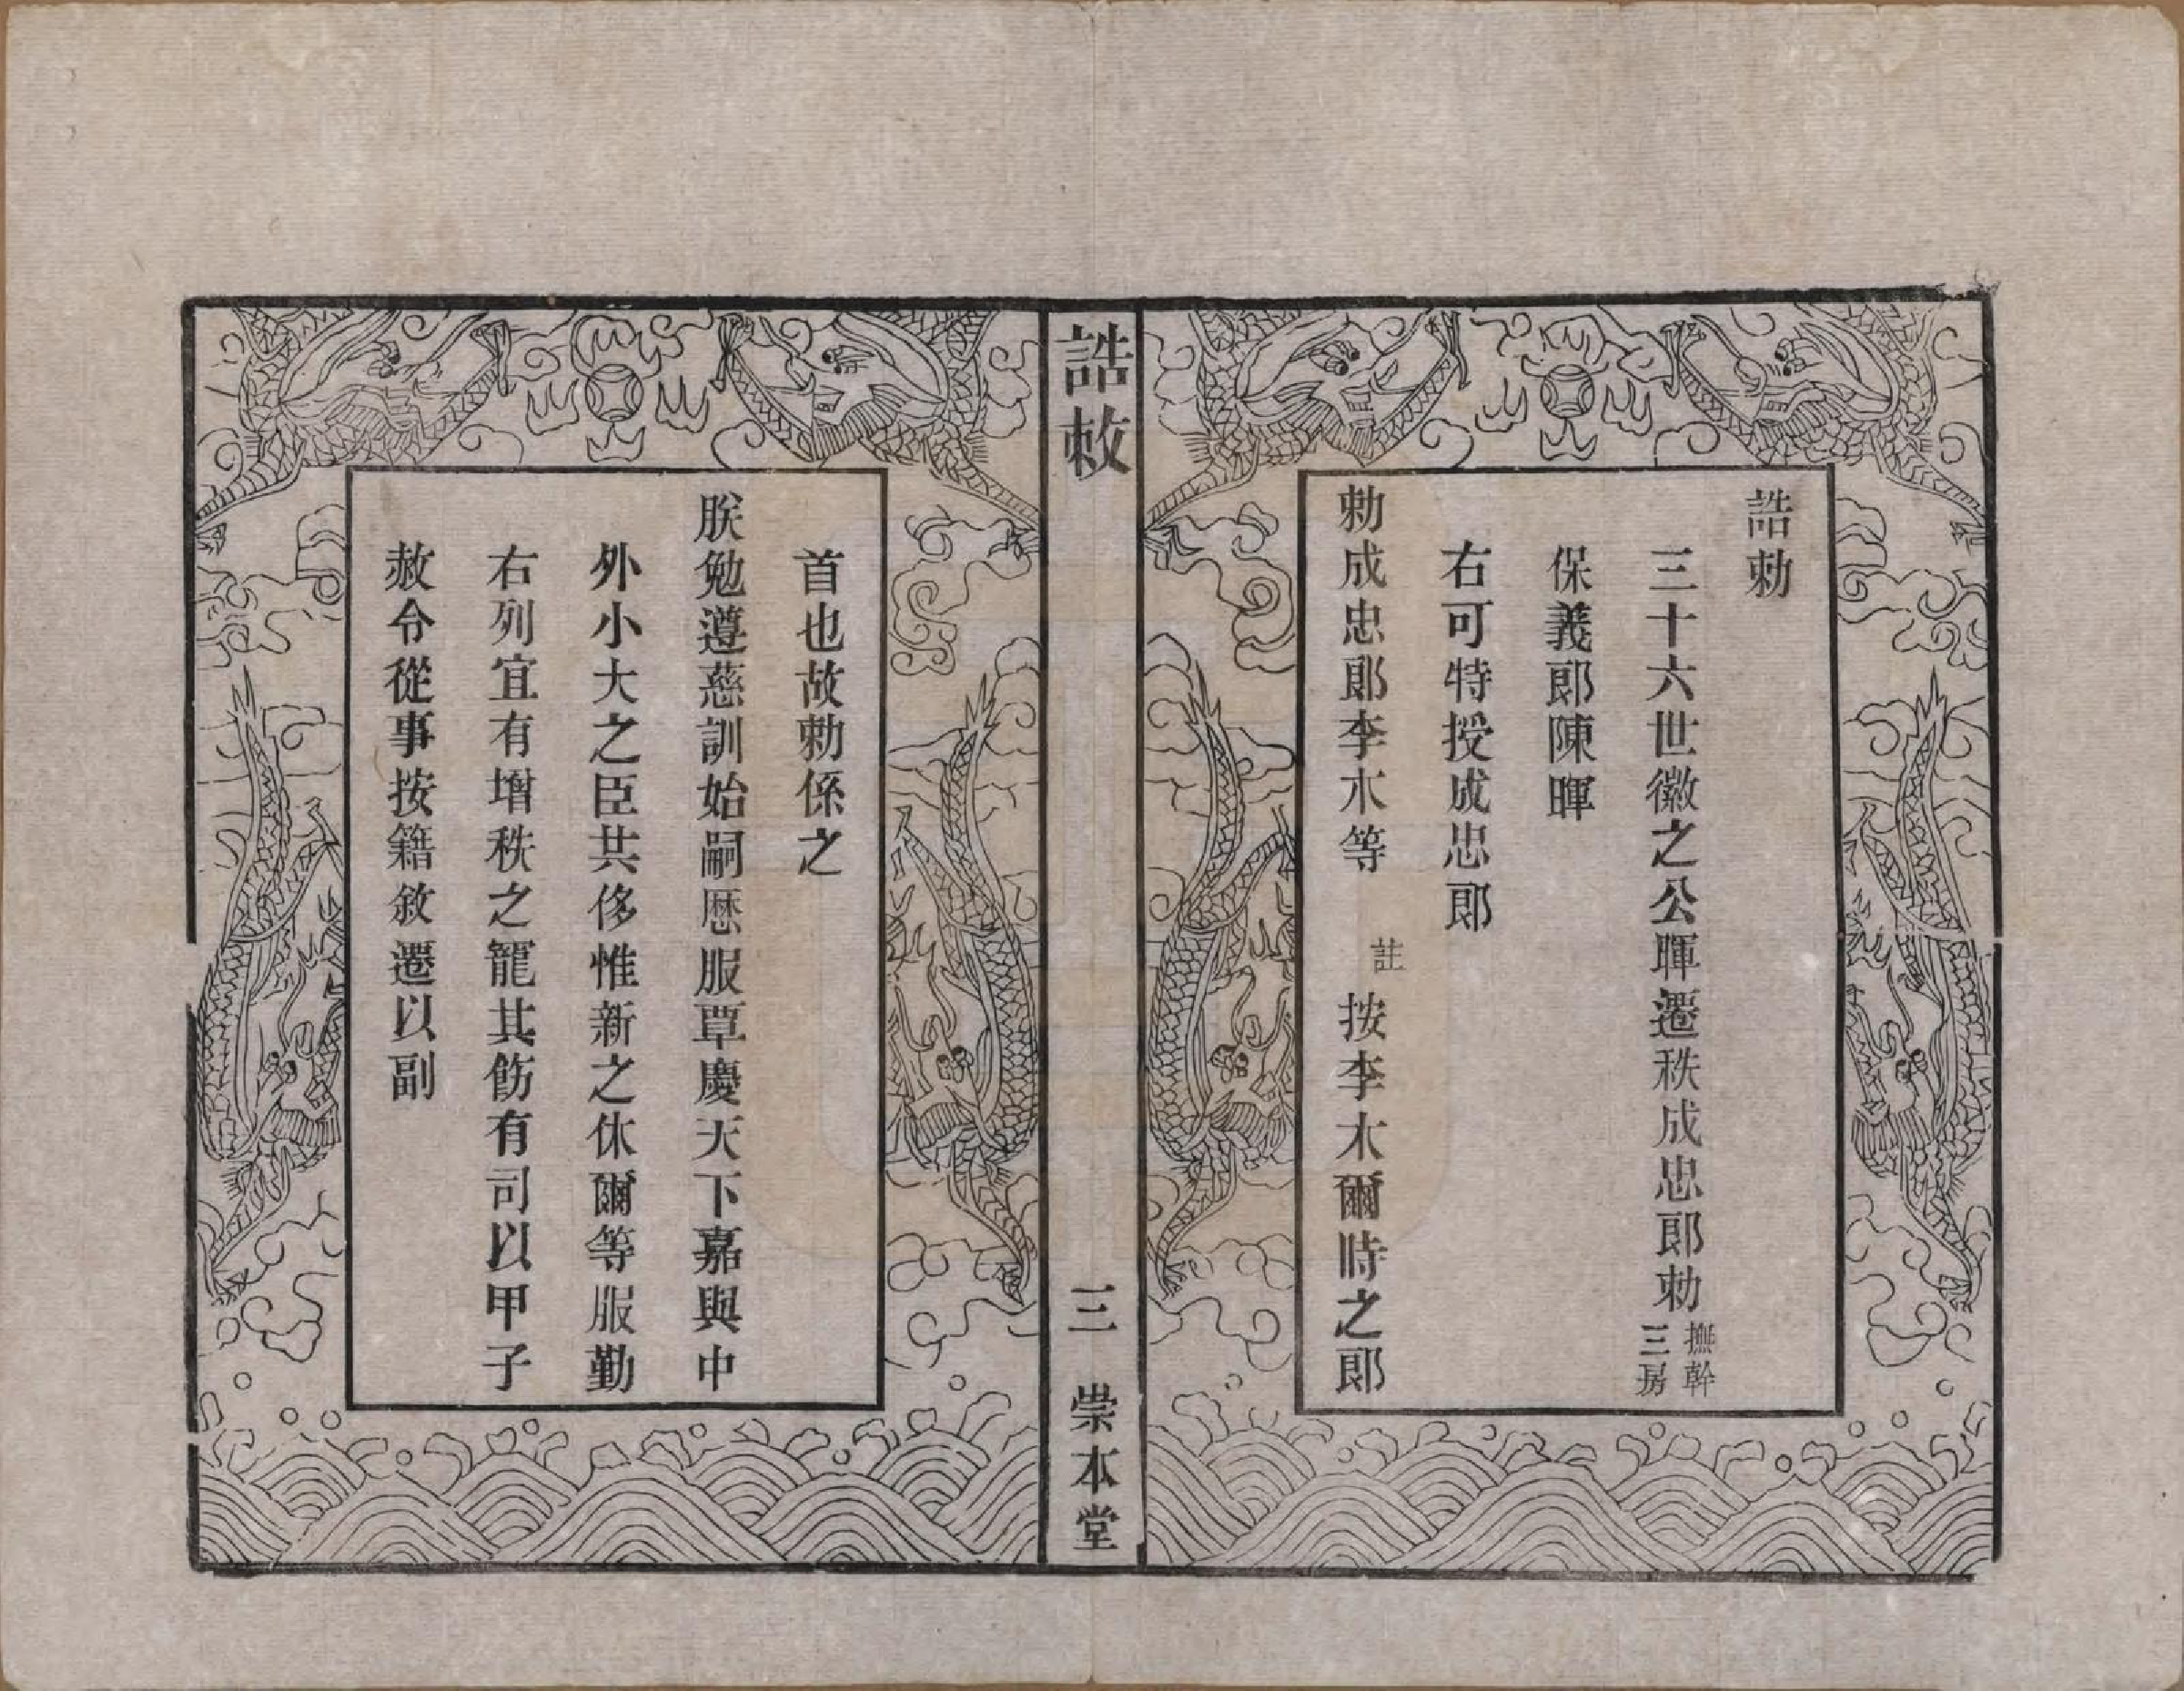 誥勅
三十六世徽之公暉遷秩成忠郎勅撫幹三房
保義郎陳暉
右可特授成忠郎
勅成忠郎李木等 註 按李木爾時之郎
誥敕
三 崇本堂
首也故勅係之
朕勉遵慈訓始嗣歷服覃慶天下嘉與中
外小大之臣共侈惟新之休爾等服勤
右列宜有增秩之寵其飭有司以甲子
赦令從事按籍敘遷以副